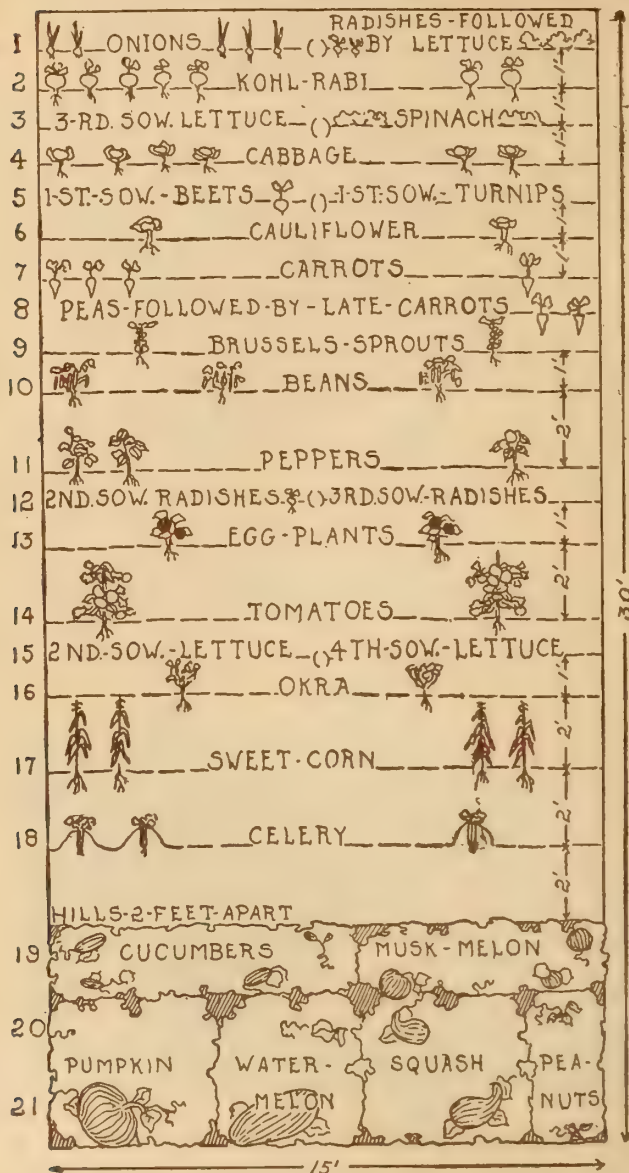 RADISHES-FOLLOWED
1 ONIONS () BY LETTUCE
1'
2 KOHL-RABI
1'
3 3-RD. SOW. LETTUCE () SPINACH
1'
4 CABBAGE
5 1-ST.-SOW.-BEETS () 1-ST.-SOW.-TURNIPS
1'
6 CAULIFLOWER
1'
7 CARROTS
8 PEAS-FOLLOWED-BY-LATE-CARROTS
9 BRUSSELS-SPROUTS
1'
10 BEANS
2'
11 PEPPERS
12 2ND. SOW. RADISHES () 3RD. SOW-RADISHES
1'
13 EGG-PLANTS
2'
30'
14 TOMATOES
15 2ND.-SOW.-LETTUCE () 4TH-SOW.-LETTUCE
1'
16 OKRA
2'
17 SWEET-CORN
2'
18 CELERY
2'
HILLS-2-FEET-APART
19 CUCUMBERS MUSK-MELON
20
PUMPKIN WATER-MELON SQUASH PEA-NUTS
21
15'